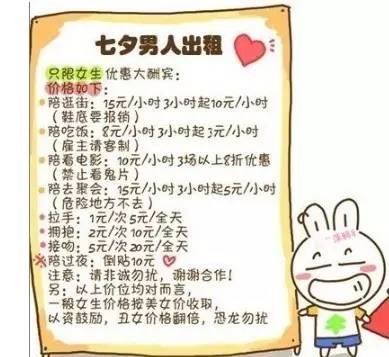 七夕男人出租
只限女生优惠大酬宾:
价格如下:
陪逛街: 15元/小时 3小时起10元/小时
(鞋底要报销)
陪吃饭: 8元/小时 3小时起3元/小时
(雇主请客制)
陪看电影: 10元/小时 3场以上8折优惠
(禁止看鬼片)
陪去聚会: 15元/小时 3小时起5元/小时
(危险地方不去)
拉手: 1元/次 5元/全天
拥抱: 2元/次 10元/全天
接吻: 5元/次 20元/全天
※陪过夜: 倒贴10元
注意: 请非诚勿扰, 谢谢合作!
另: 以上价位均对而言,
一般女生价格按美女价收取,
以资鼓励, 丑女价格翻倍, 恐龙勿扰